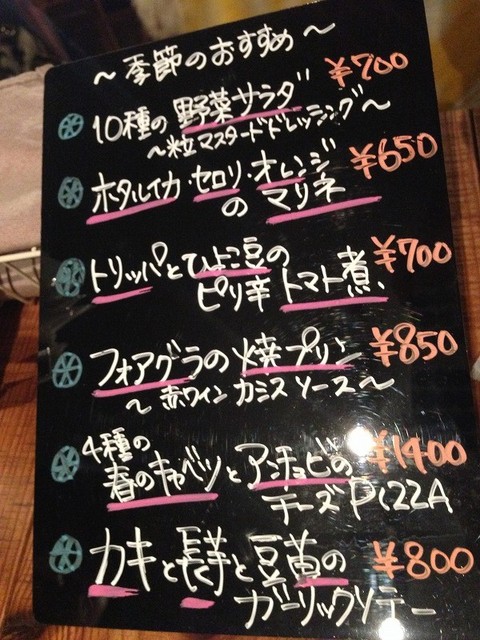 ～季節のおすすめ～
10種の野菜サラダ ¥700
～粒マスタードドレッシング～
ホタルイカ・セロリ・オレンジ ¥650
のマリネ
トリッパとひよこ豆の ¥700
ピリ辛トマト煮、
フォアグラの焼プリン ¥850
～赤ワインカシスソース～
4種の
春のキャベツとアンチョビの ¥1400
チーズPIZZA
カキと長芋と豆苗の ¥800
ガーリックソテー